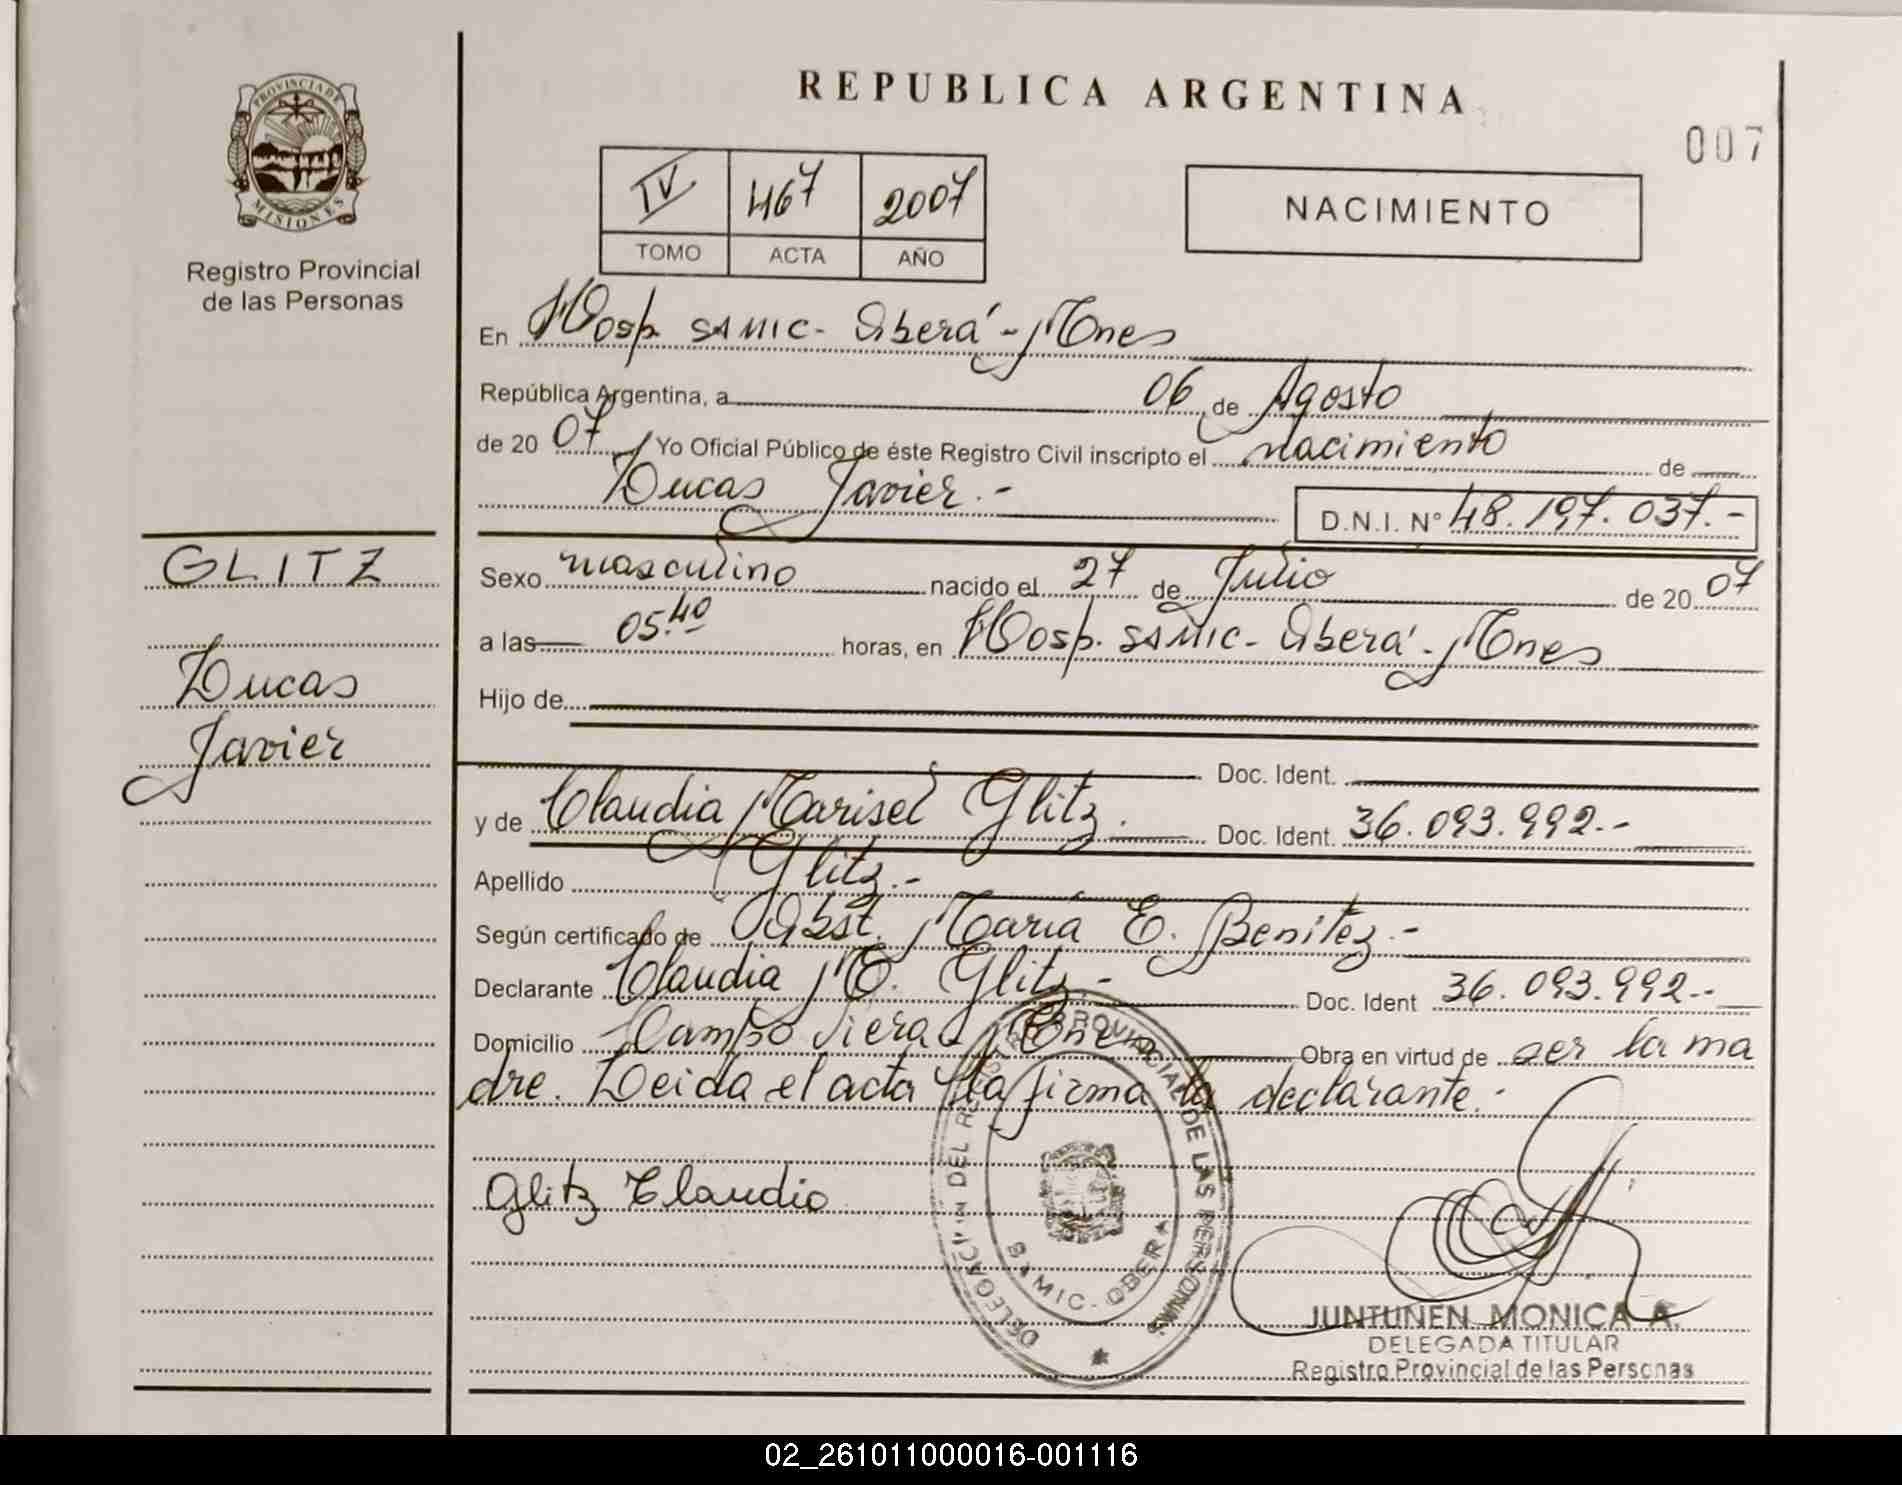 REPUBLICA ARGENTINA
007
PROVINCIA DE
MISIONES
Registro Provincial
de las Personas
IV 467 2007
TOMO ACTA AÑO
NACIMIENTO
En Hosp. SAMIC- Oberá - Mnes
República Argentina, a 06 de Agosto
de 20 07, Yo Oficial Público de éste Registro Civil inscripto el nacimiento de
Lucas Javier.- D.N.I. N° 48.197.037.-
GLITZ
Lucas
Javier
Sexo masculino nacido el 27 de Julio de 20 07
a las 05.40 horas, en Hosp. SAMIC- Oberá - Mnes
Hijo de
Doc. Ident.
y de Claudia Marisel Glitz. Doc. Ident. 36.093.992.-
Apellido Glitz.-
Según certificado de Obst. María E. Benitez.-
Declarante Claudia M. Glitz.- Doc. Ident 36.093.992.-
Domicilio Campo Viera - Mnes Obra en virtud de ser la ma
dre. Leida el acta la firma la declarante.-
Glitz Claudia
DELEGACION DEL REGISTRO PROVINCIAL DE LAS PERSONAS
SAMIC - OBERA
JUNTUNEN MONICA A.
DELEGADA TITULAR
Registro Provincial de las Personas
02_261011000016-001116